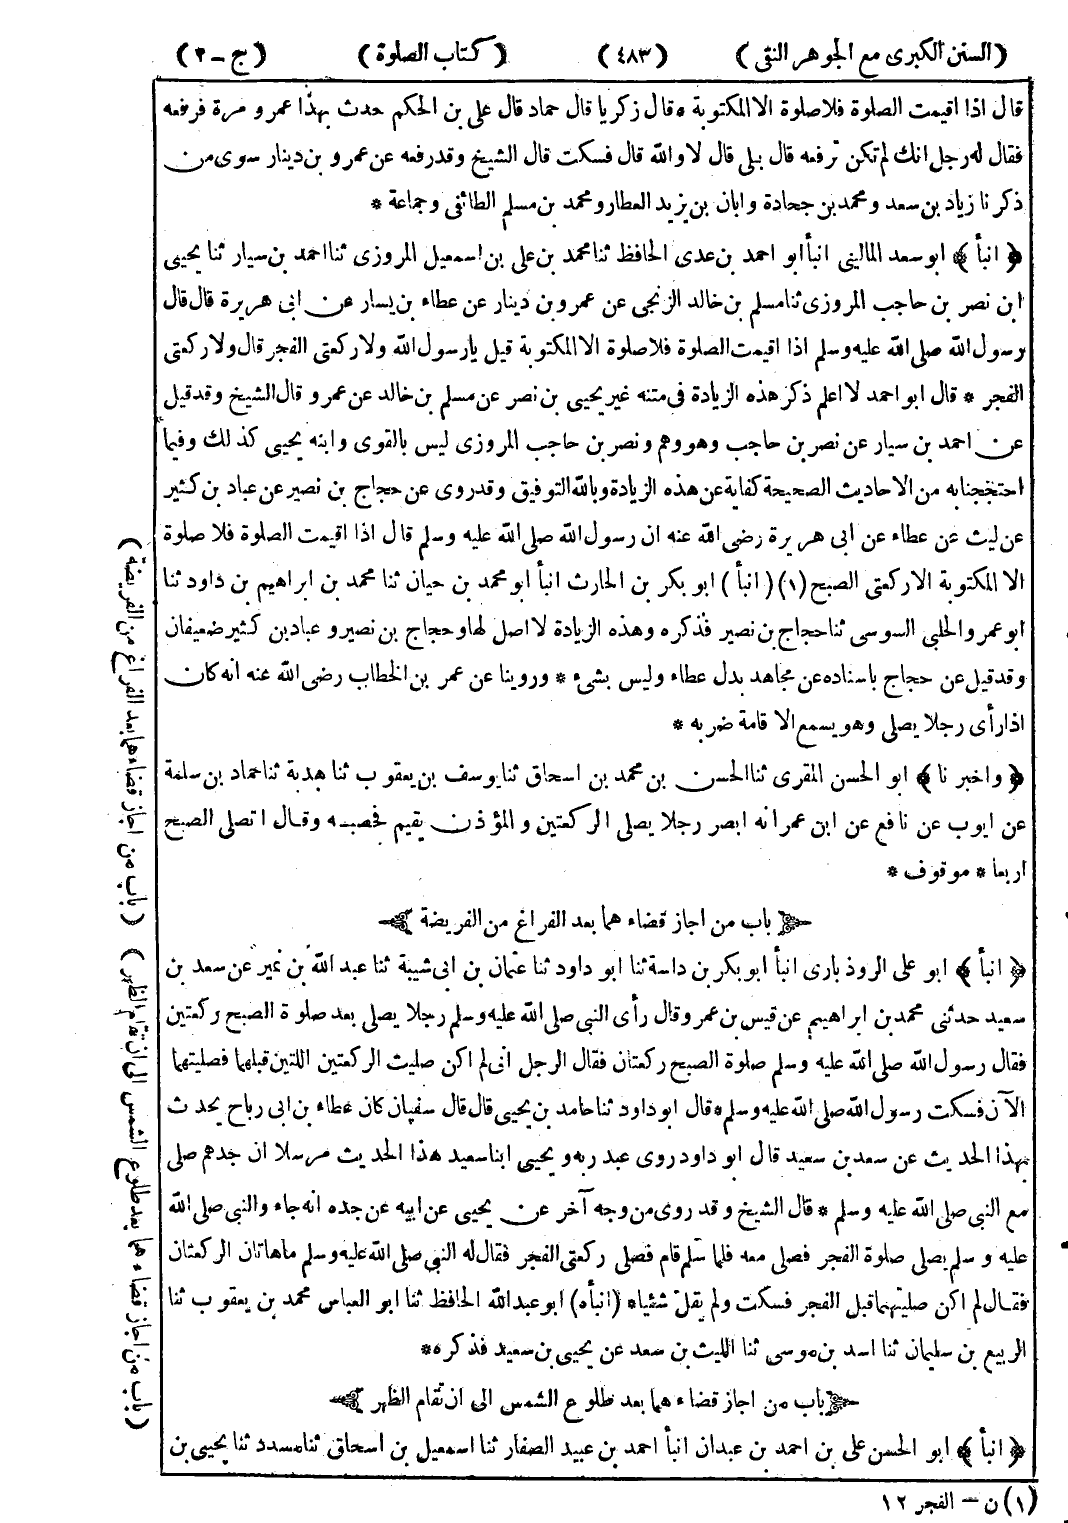 (السنن الكبرى مع الجوهر النقى) (٤٨٣) (كتاب الصلوة) (ج - ٢)
قال اذا اقيمت الصلوة فلا صلوة الا المكتوبة * قال زكريا قال حماد قال على بن الحكم حدث بهذا عمرو مرة فرفعه
فقال له رجل انك لم تكن ترفعه قال بلى قال لا والله قال فسكت قال الشيخ وقد رفعه عن عمرو بن دينار سوى من
ذكرنا زياد بن سعد ومحمد بن جحادة وابان بن يزيد العطار ومحمد بن مسلم الطائفى وجماعة *
﴿ انبأ ﴾ ابو سعد المالينى انبأ ابو احمد بن عدى الحافظ ثنا محمد بن على بن اسمعيل المروزى ثنا احمد بن سيار ثنا يحيى
ابن نصر بن حاجب المروزى ثنا مسلم بن خالد الزنجى عن عمرو بن دينار عن عطاء بن يسار عن ابى هريرة قال قال
رسول الله صلى الله عليه وسلم اذا اقيمت الصلوة فلا صلوة الا المكتوبة قيل يا رسول الله ولا ركعتى الفجر قال ولا ركعتى
الفجر * قال ابو احمد لا اعلم ذكر هذه الزيادة فى متنه غير يحيى بن نصر عن مسلم بن خالد عن عمرو قال الشيخ وقد قيل
عن احمد بن سيار عن نصر بن حاجب وهو وهم ونصر بن حاجب المروزى ليس بالقوى وابنه يحيى كذلك وفيما
احتججنا به من الاحاديث الصحيحة كفاية عن هذه الزيادة وبالله التوفيق وقد روى عن حجاج بن نصير عن عباد بن كثير
عن ليث عن عطاء عن ابى هريرة رضى الله عنه ان رسول الله صلى الله عليه وسلم قال اذا اقيمت الصلوة فلا صلوة
الا المكتوبة الا ركعتى الصبح (١) (انبأ) ابو بكر بن الحارث انبأ ابو محمد بن حيان ثنا محمد بن ابراهيم بن داود ثنا
ابو عمرو الحلبى السوسى ثنا حجاج بن نصير فذكره وهذه الزيادة لا اصل لها وحجاج بن نصير وعباد بن كثير ضعيفان
وقد قيل عن حجاج باسناده عن مجاهد بدل عطاء وليس بشىء * وروينا عن عمر بن الخطاب رضى الله عنه انه كان
اذا رأى رجلا يصلى وهو يسمع الاقامة ضربه *
﴿ واخبرنا ﴾ ابو الحسن المقرى ثنا الحسن بن محمد بن اسحاق ثنا يوسف بن يعقوب ثنا هدبة ثنا حماد بن سلمة
عن ايوب عن نافع عن ابن عمر انه ابصر رجلا يصلى الركعتين والمؤذن يقيم فحصبه وقال اتصلى الصبح
اربعا * موقوف *
باب من اجاز قضاءهما بعد الفراغ من الفريضة
﴿ انبأ ﴾ ابو على الروذبارى انبأ ابو بكر بن داسة ثنا ابو داود ثنا عثمان بن ابى شيبة ثنا عبد الله بن نمير عن سعد بن
سعيد حدثنى محمد بن ابراهيم عن قيس بن عمرو قال رأى النبى صلى الله عليه وسلم رجلا يصلى بعد صلوة الصبح ركعتين
فقال رسول الله صلى الله عليه وسلم صلوة الصبح ركعتان فقال الرجل انى لم اكن صليت الركعتين اللتين قبلهما فصليتهما
الآن فسكت رسول الله صلى الله عليه وسلم * قال ابو داود ثنا حامد بن يحيى قال قال سفيان كان عطاء بن ابى رباح يحدث
بهذا الحديث عن سعد بن سعيد قال ابو داود روى عبد ربه ويحيى ابنا سعيد هذا الحديث مرسلا ان جدهم صلى
مع النبى صلى الله عليه وسلم * قال الشيخ وقد روى من وجه آخر عن يحيى عن ابيه عن جده انه جاء والنبى صلى الله
عليه وسلم يصلى صلوة الفجر فصلى معه فلما سلم قام فصلى ركعتى الفجر فقال له النبى صلى الله عليه وسلم ماهاتان الركعتان
فقال لم اكن صليتهما قبل الفجر فسكت ولم يقل شيئا * (انبأه) ابو عبد الله الحافظ ثنا ابو العباس محمد بن يعقوب ثنا
الربيع بن سليمان ثنا اسد بن موسى ثنا الليث بن سعد عن يحيى بن سعيد فذكره *
باب من اجاز قضاءهما بعد طلوع الشمس الى ان تقام الظهر
﴿ انبأ ﴾ ابو الحسن على بن احمد بن عبدان انبأ احمد بن عبيد الصفار ثنا اسمعيل بن اسحاق ثنا مسدد ثنا يحيى بن
(١) ن - الفجر ١٢
(باب من اجاز قضاءهما بعد الفراغ من الفريضة)
(باب من اجاز قضاءهما بعد طلوع الشمس الى ان تقام الظهر)